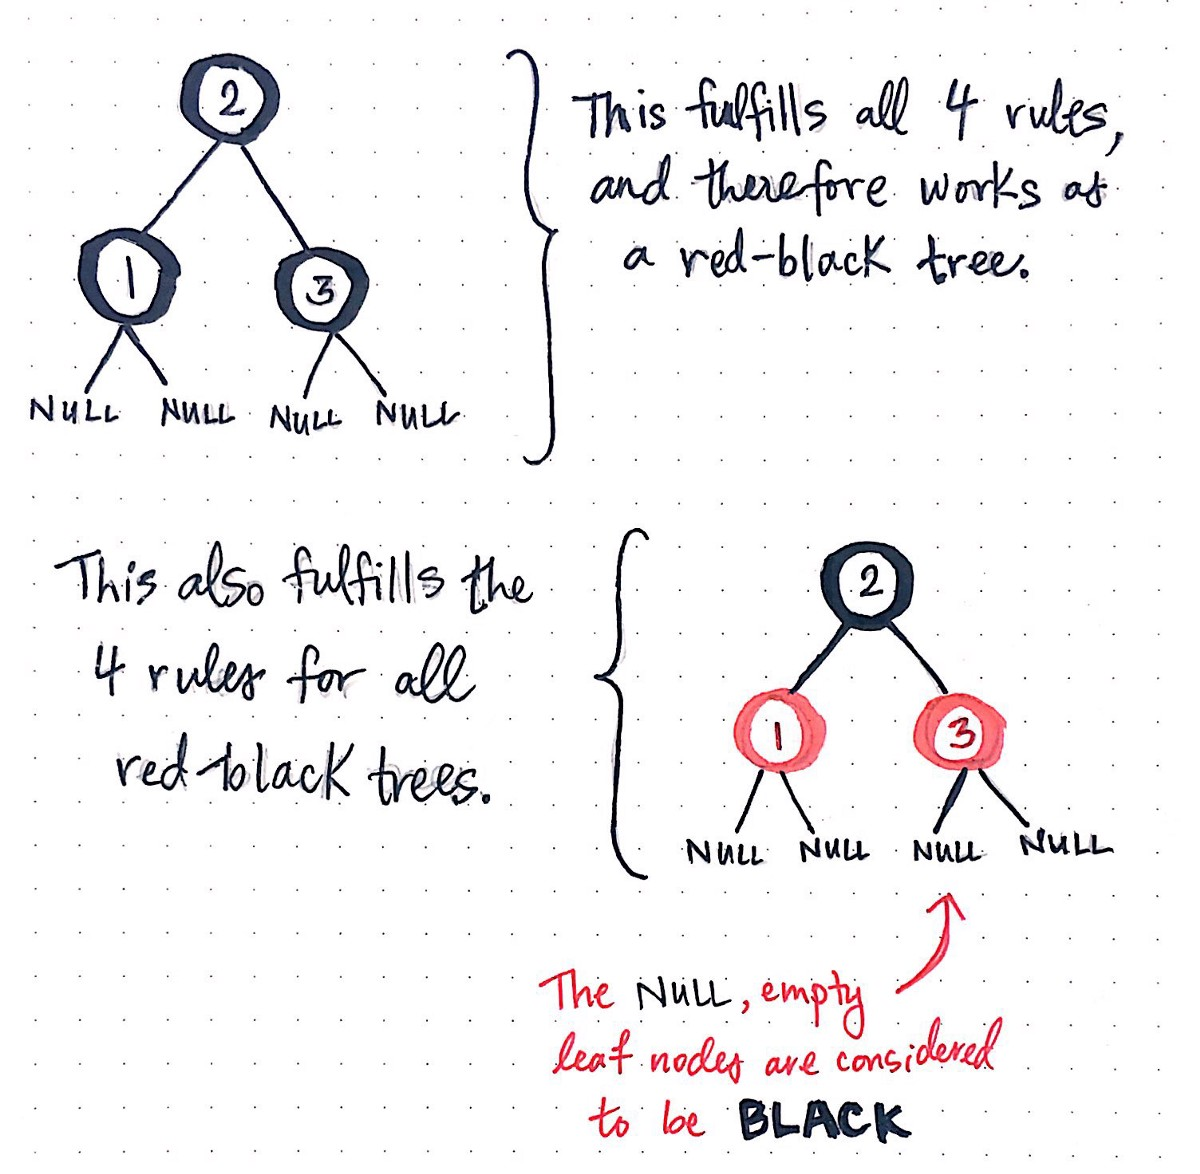 2
1
3
NULL NULL NULL NULL
This fulfills all 4 rules,
and therefore works as
a red-black tree.
This also fulfills the
4 rules for all
red-black trees.
2
1
3
NULL NULL NULL NULL
The NULL, empty
leaf nodes are considered
to be BLACK